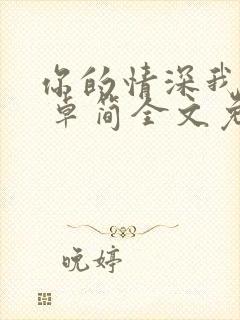 你的情深我
卓简全文免
晚婷